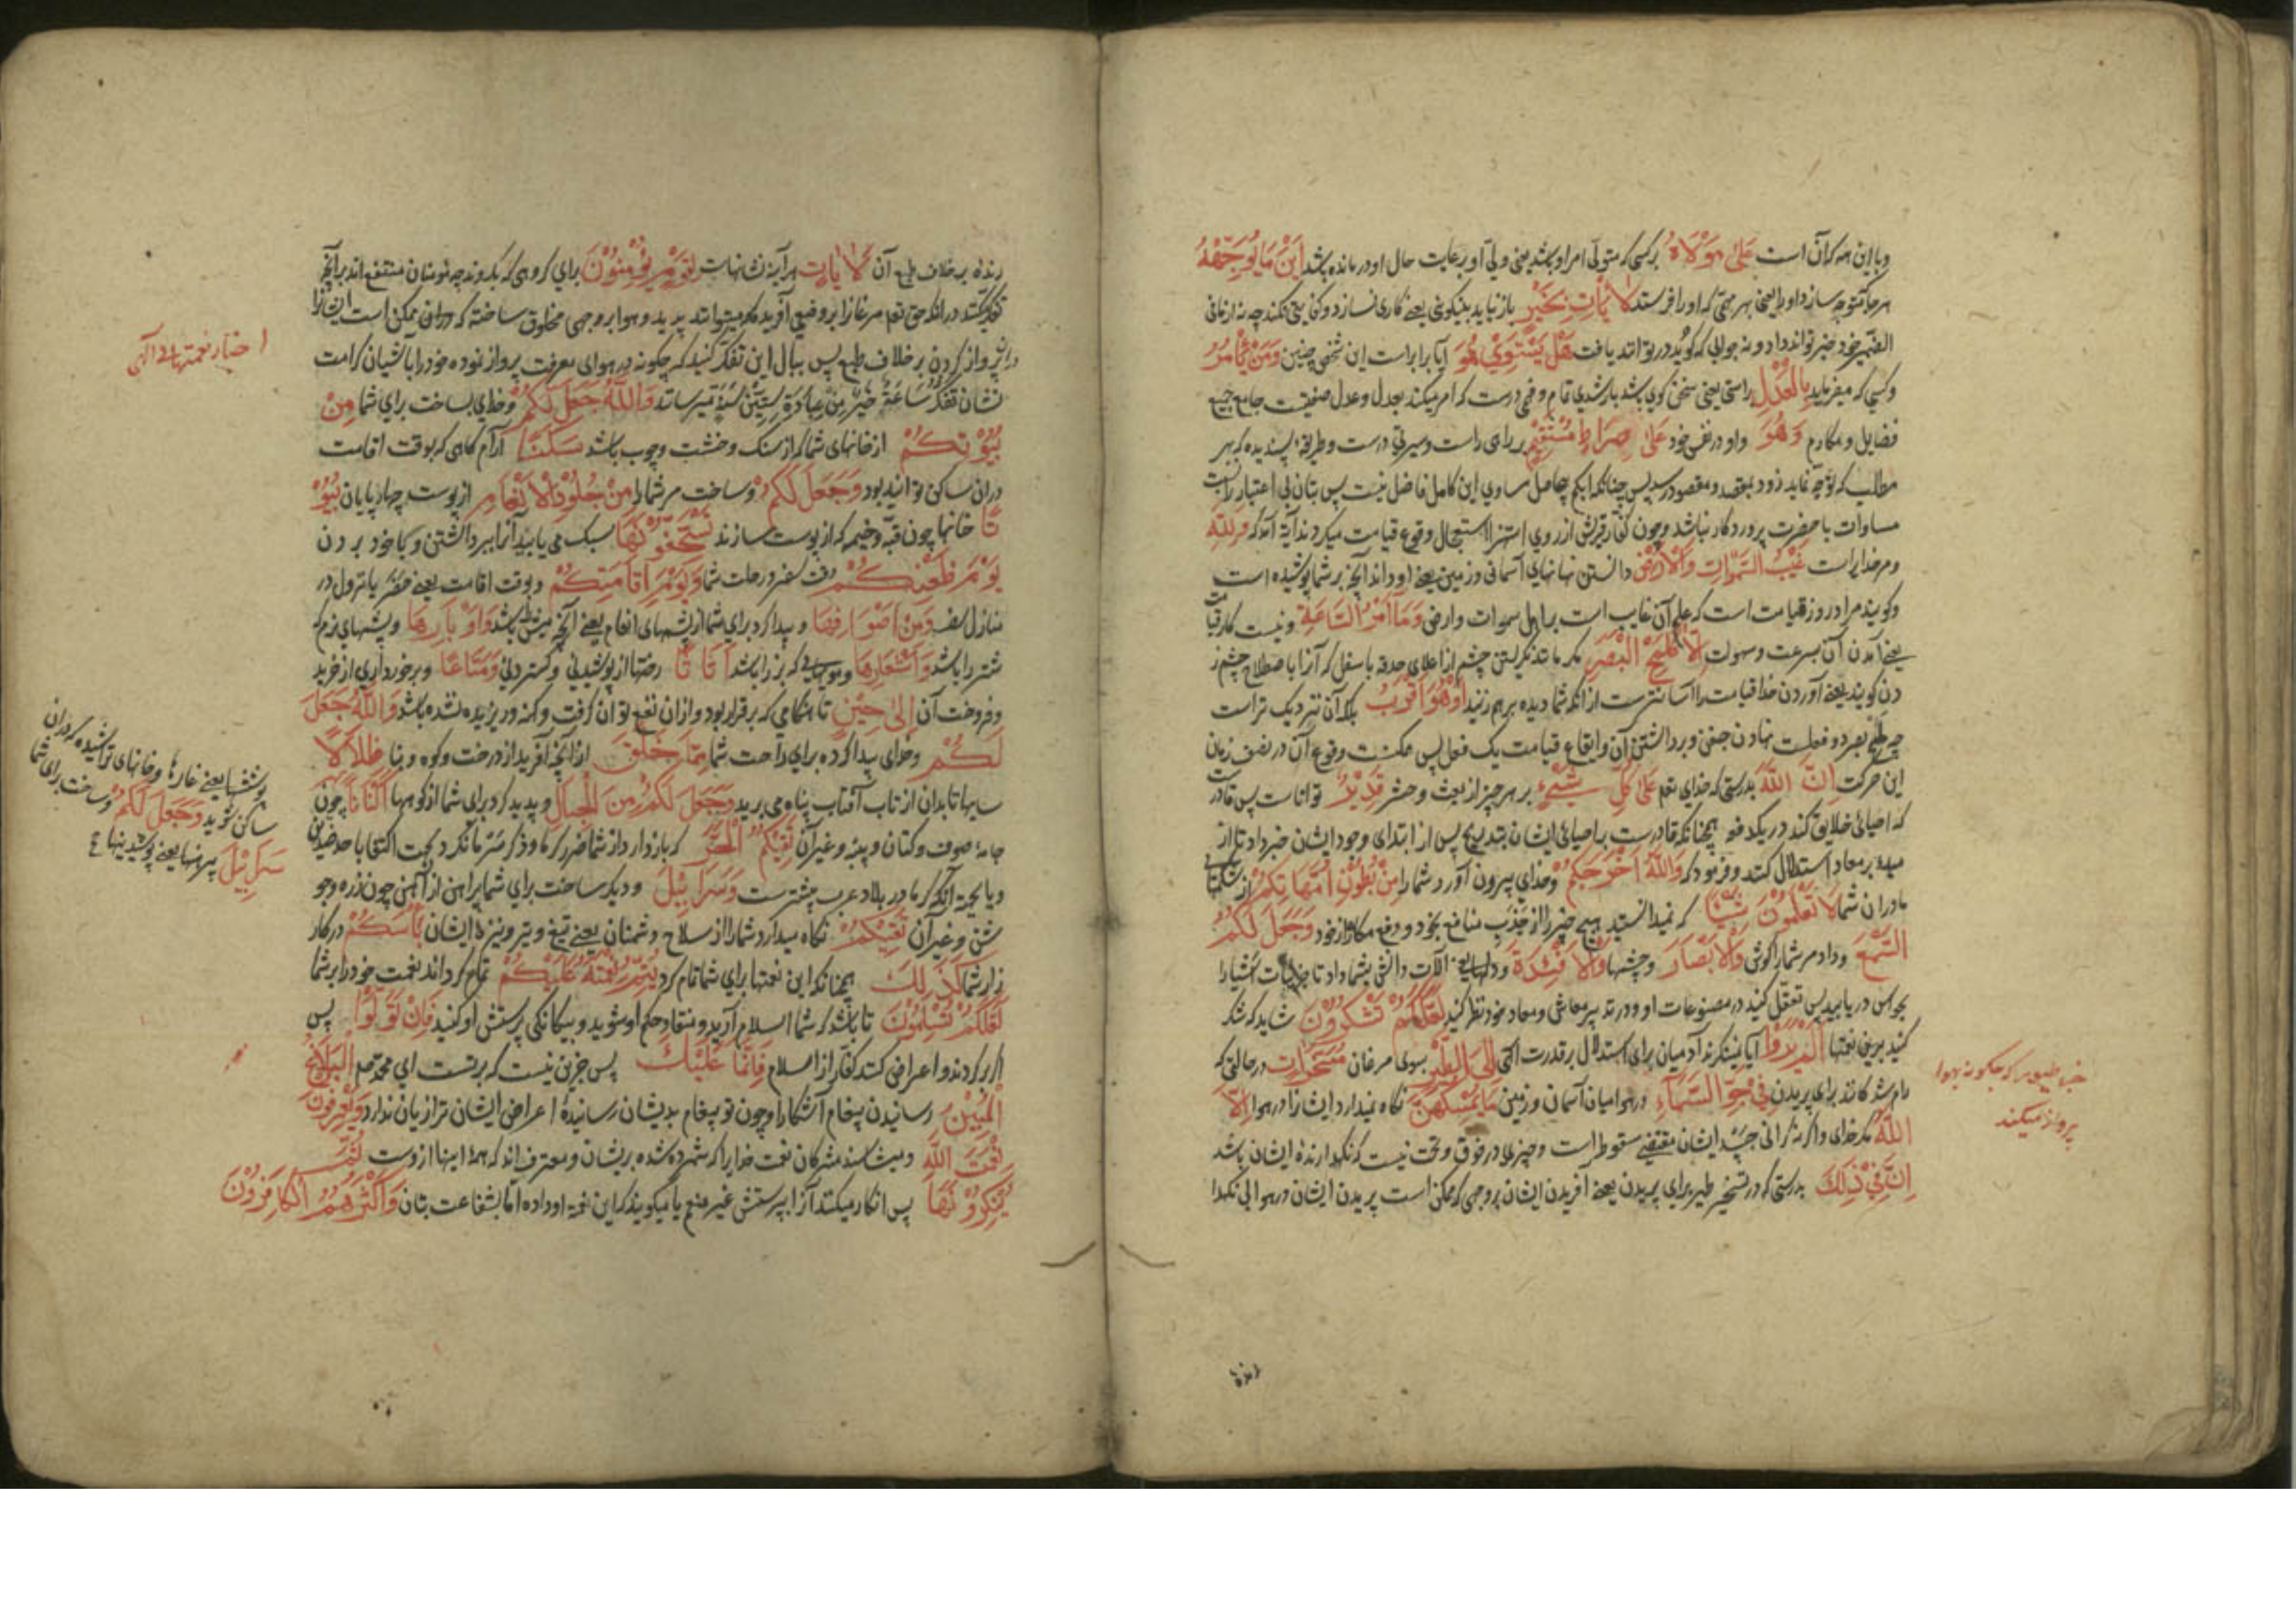 وبا این همه کران است عَلىٰ مَوْلَاهُ بر کسی که متولّی امر او باشد یعنی ولیّ او رعایت حال او درمانده باشد اَیْنَ مَا یُوَجِّهْهُ
هر جا که متوجه سازد او را یعنی بهر مهمّی که او را فرستد لَا یَأْتِ بِخَیْرٍ باز نیاید بنیکویی یعنی کاری نسازد و کفایتی نکند چه نه از مافی
الضمیر خود خبر تواند داد و نه جوابی که گوید در تواند یافت هَلْ یَسْتَوِیْ هُوَ آیا برابر است این شخص چنین وَمَنْ یَّأْمُرُ
و کسی که میفرماید بِالْعَدْلِ براستی یعنی سخن گوی باشد با رشدی تمام و فهمی درست که امر میکند بعدل و عدل صفتیست جامع جمیع
فضایل و مکارم وَهُوَ و او در نفس خود عَلىٰ صِرَاطٍ مُسْتَقِیْمٍ بر راهی راست و سیرتی درست و طریقهٔ پسندیده که بهر
مطلب که توجّه نماید زود بمقصد و مقصود رسد پس چنانکه ابکم جاهل مساوی این کامل فاضل نیست پس بتان بی اعتبار را نسبت
مساوات با حضرت پروردکار نباشد و چون کفار قریش از روی استهزا استعجال وقوع قیامت میکردند آیة آمد که وَلِلّٰهِ
و مر خدایراست غَیْبُ السَّمٰوَاتِ وَالْاَرْضِ دانستن نهانیهای آسمانی و زمین یعنی او داند آنچه بر شما پوشیده است
و گویند مراد روز قیامت است که علم آن غایب است بر اهل سموات و ارض وَمَا اَمْرُ السَّاعَةِ و نیست کار قیامت
یعنی آمدن آن بسرعت و سهولت اِلَّا کَلَمْحِ الْبَصَرِ مکر مانند نکریستن چشم از اعلای حدقه باسفل که آنرا باصطلاح چشم ز
دن گویند یعنی آوردن خدا قیامت را آسانترست از آنکه شما دیده برهم زنید اَوْ هُوَ اَقْرَبُ بلکه آن نزدیک تر است
چه لمح بصر دو فعلست نهادن جفن و برداشتن آن و ایقاع قیامت یک فعل پس ممکنست وقوع آن در نصف زمان
این حرکت اِنَّ اللّٰهَ بدرستی که خدای تعم عَلىٰ کُلِّ شَیْءٍ بر همه چیز از بعث و حشر قَدِیْرٌ تواناست پس قادرست
که احیای خلایق کند در یکدفعه همچنانکه قادرست بر احیای ایشان بتدریج پس از ابتدای وجود ایشان خبر داد تا از
مبدء بر معاد استدلال کنند و فرمود که وَاللّٰهُ اَخْرَجَکُمْ و خدای بیرون آورد شما را مِنْ بُطُوْنِ اُمَّهَاتِکُمْ از شکمهای
مادران شما لَا تَعْلَمُوْنَ شَیْئًا که نمیدانستید هیچ چیز را از جذب منافع بخود و دفع مکاره از خود وَجَعَلَ لَکُمُ
السَّمْعَ و داد مر شما را گوش وَالْاَبْصَارَ و چشمها وَالْاَفْئِدَةَ و دلها یعنی آلات دانش بشما داد تا جزئیات اشیا را
بحواس دریابید پس تعقّل کنید در مصنوعات او و در تدبیر معاش و معاد خود نظر کنید لَعَلَّکُمْ تَشْکُرُوْنَ شاید که شکر
کنید برین نعتها اَلَمْ یَرَوْا آیا نمینکرند آدمیان برای استدلال بر قدرت الهی اِلَى الطَّیْرِ بسوی مرغان مُسَخَّرَاتٍ در حالتی که
رام شدکانند برای پریدن فِیْ جَوِّ السَّمَآءِ در هوا میان آسمان و زمین مَا یُمْسِکُهُنَّ نکاه نمیدارد ایشانرا در هوا اِلَّا
اللّٰهُ مکر خدای و اکر نه کرانی جسد ایشان مقتضی سقوط است و چیزی علاوه در فوق و تحت نیست که نکهدارندهٔ ایشان باشد
اِنَّ فِیْ ذٰلِکَ بدرستی که در تسخیر طیر برای پریدن یعنی آفریدن ایشان بر وجهی که ممکن است پریدن ایشان در هوا بی نکهدا
خبر طیور که چکونه بهوا
پرواز میکنند
رنده
رنده بر خلاف طبع آن لَاٰیَاتٍ هر آینه نشانهاست لِقَوْمٍ یُّؤْمِنُوْنَ برای کروهی که بکروند چه مومنان منتفع اند بر آنچه
تفکر کنند در آنکه حق تعم مرغانرا بر وضعی آفرید که میتوانند پرید و هوا بر وجهی مخلوق ساخته که در آن ممکن است ایشانرا
پرواز کردن بر خلاف طبع پس ببال این تفکر کنید که چکونه در هوای معرفت پرواز نموده خود را بآشیان کرامت
نشان تَفَکُّرُ سَاعَةٍ خَیْرٌ مِّنْ عِبَادَةِ سِتِّیْنَ سَنَةً میرساند وَاللّٰهُ جَعَلَ لَکُمْ و خدای بساخت برای شما مِنْ
بُیُوْتِکُمْ از خانهای شما که از سنک و خشت و چوب باشد سَکَنًا آرام کاهی که بوقت اقامت
در ان ساکن توانید بود وَجَعَلَ لَکُمْ و ساخت مر شما را مِنْ جُلُوْدِ الْاَنْعَامِ از پوست چهارپایان بُیُوْ
تًا خانها چون قبّه و خیمه که از پوست سازند تَسْتَخِفُّوْنَهَا سبک می یابید آنرا ببرداشتن و با خود بردن
یَوْمَ ظَعْنِکُمْ وقت سفر و رحلت شما وَیَوْمَ اِقَامَتِکُمْ و بوقت اقامت یعنی حضر یا نزول در
منازل سفر وَمِنْ اَصْوَافِهَا و پیدا کرد برای شما از پشمهای انعام یعنی آنچه میش را باشد وَاَوْبَارِهَا و پشمهای نرم که
شتر را باشد وَاَشْعَارِهَا و مویهایی که بز را باشد اَثَاثًا رختها از پوشیدنی و کستردنی وَمَتَاعًا و برخورداری از خرید
و فروخت آن اِلىٰ حِیْنٍ تا هنکامی که برقرار بود و از ان نفع توان کرفت و کهنه و ریزیده نشده باشد وَاللّٰهُ جَعَلَ
لَکُمْ و خدای پیدا کرده برای راحت شما مِّمَّا خَلَقَ از آنچه آفرید از درخت و کوه و بنا ظِلَالًا
سایها تا بدان از تاب آفتاب پناه می برید وَجَعَلَ لَکُمْ مِّنَ الْجِبَالِ و پدید کرد برای شما از کوهها اَکْنَانًا
جامهٔ صوف و کتان و پنبه و غیر آن تَقِیْکُمُ الْحَرَّ که بازدارد از شما ضرر کرما و ذکر سرما نکرد بجهت اکتفا باحد ضدین
و یا بجهة آنکه کرما در بلاد عرب بیشترست وَسَرَابِیْلَ و دیکر ساخت برای شما پیراهن از آهن چون زره و جو
شن و غیر آن تَقِیْکُمْ نکاه میدارد شما را از سلاح دشمنان یعنی تیغ و تیر و نیزهٔ ایشان بَاْسَکُمْ در کار
زار شما کَذٰلِکَ همچنانکه این نعتها برای شما تمام کرد یُتِمُّ نِعْمَتَهُ عَلَیْکُمْ تمام کرداند نعمت خود را بر شما
لَعَلَّکُمْ تُسْلِمُوْنَ تا باشد که شما اسلام آرید و منقاد حکم او شوید و بیکانکی پرستش او کنید فَاِنْ تَوَلَّوْا پس
اکر برکردند و اعراض کنند کفار از اسلام فَاِنَّمَا عَلَیْکَ پس جزین نیست که برتست ای محمد صلعم الْبَلَاغُ
الْمُبِیْنُ رسانیدن پیغام آشکارا و چون تو پیغام بدیشان رسانیدهٔ اعراض ایشان ترا زیان ندارد یَعْرِفُوْنَ
نِعْمَتَ اللّٰهِ و میشناسند مشرکان نعمت خدایرا که شمرده شده بریشان و معترف اند که همهٔ اینها از وست ثُمَّ
یُنْکِرُوْنَهَا پس انکار میکنند آنرا بپرستش غیر منعم یا میکویند که این نعمة او داده امّا بشفاعت بتان وَاَکْثَرُهُمُ الْکَافِرُوْنَ
اخبار نعمتهای الهی
پوششها یعنی غارها و خانهای تراشیده که در ان
ساکن شوید وَجَعَلَ لَکُمْ و ساخت برای شما
سَرَابِیْلَ پیرهنها یعنی پوشیدنیها